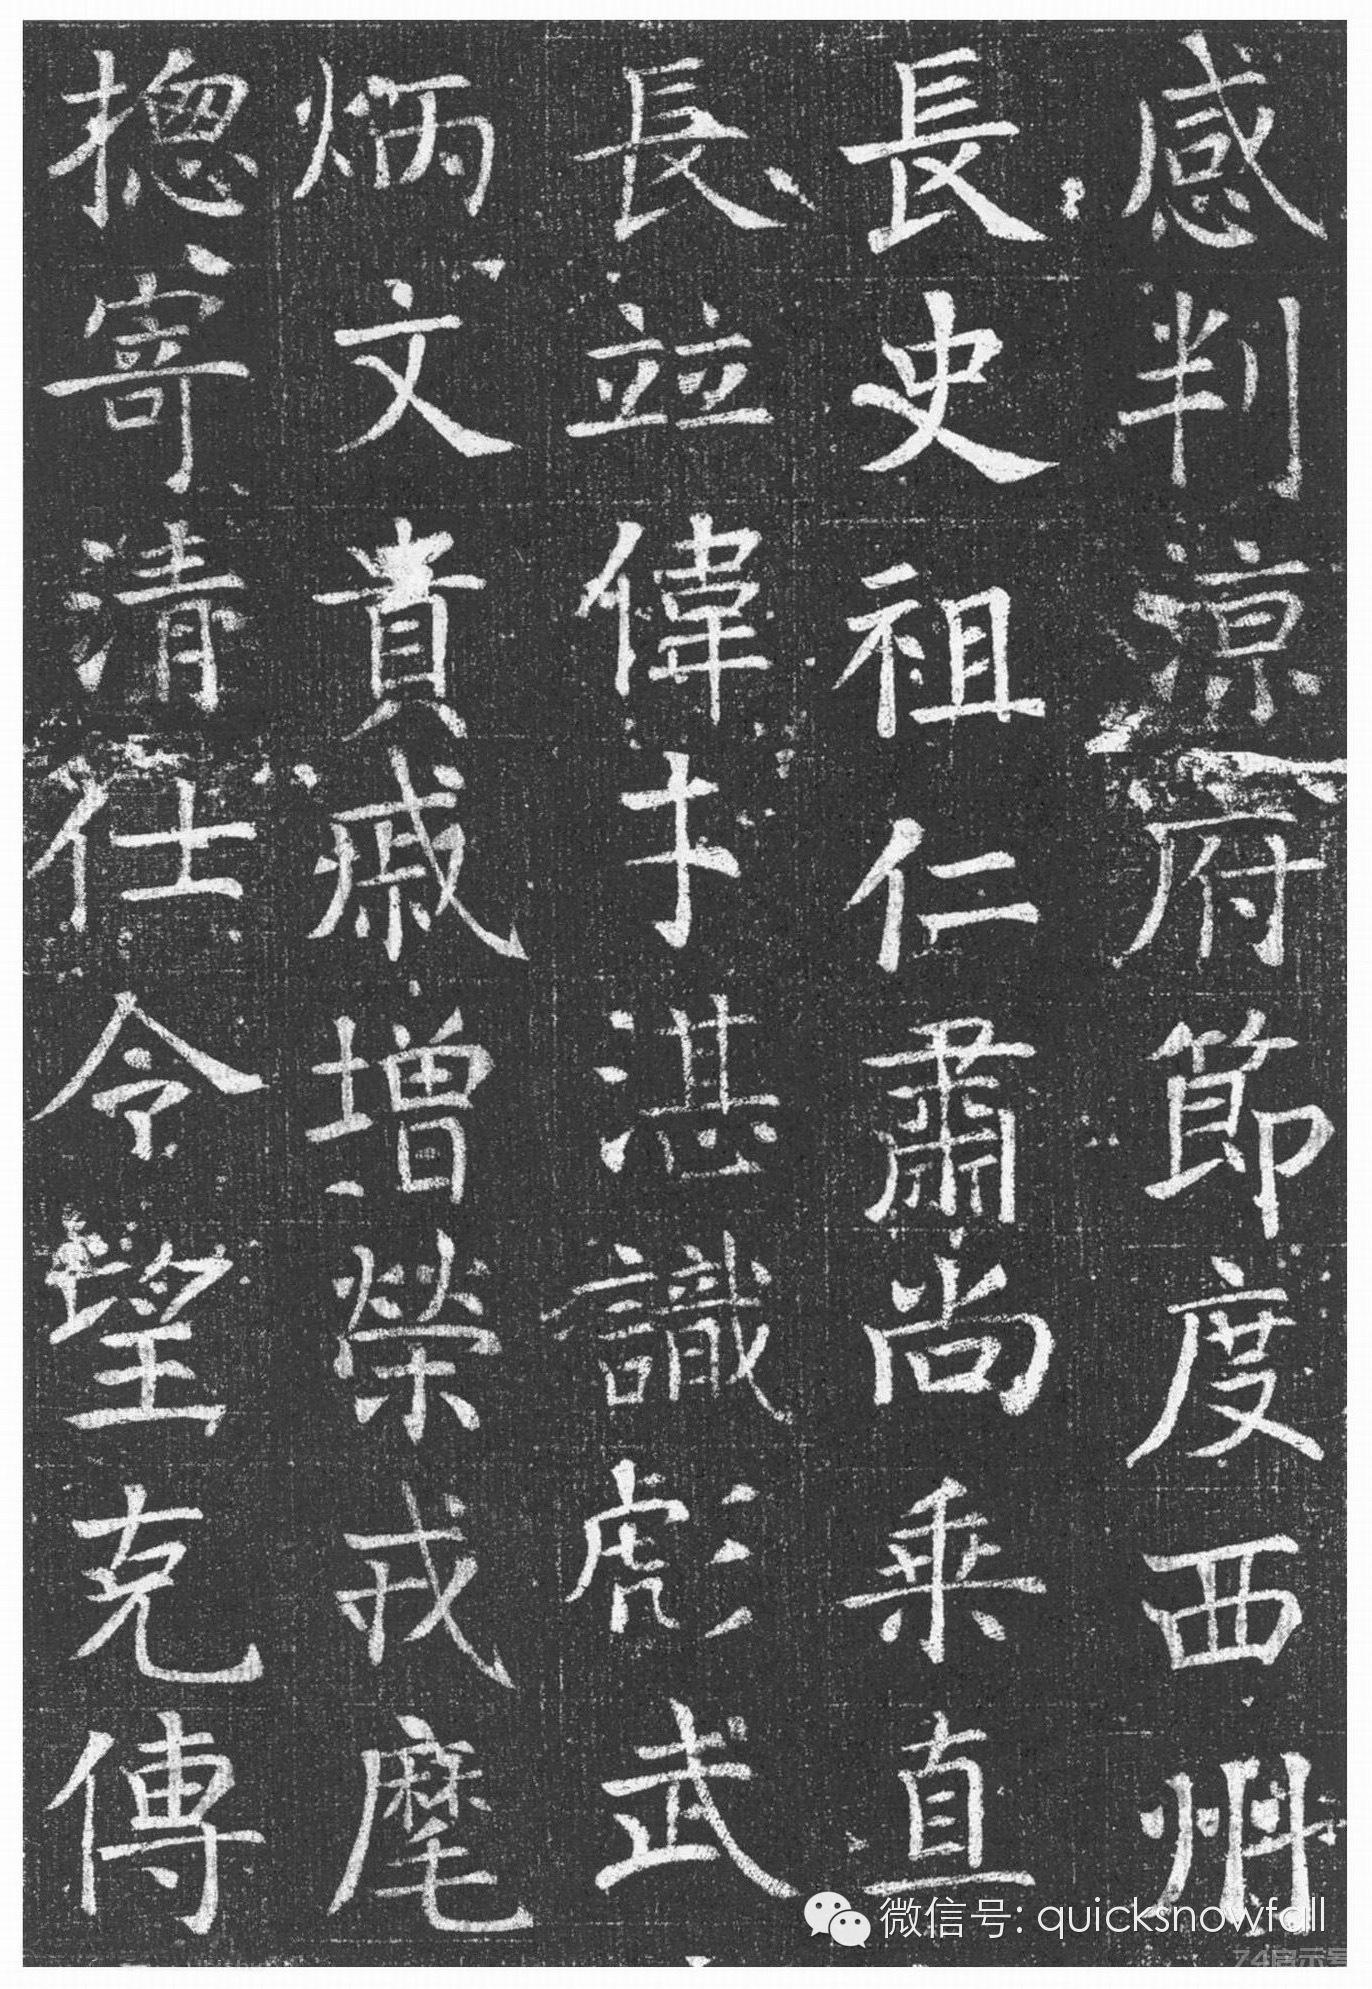 感判涼府節度西州
長史祖仁肅尚乗直
長並偉才湛識彪武
炳文貴戚增榮戎麾
揔寄清仕令望克傳
微信号: quicksnowfall